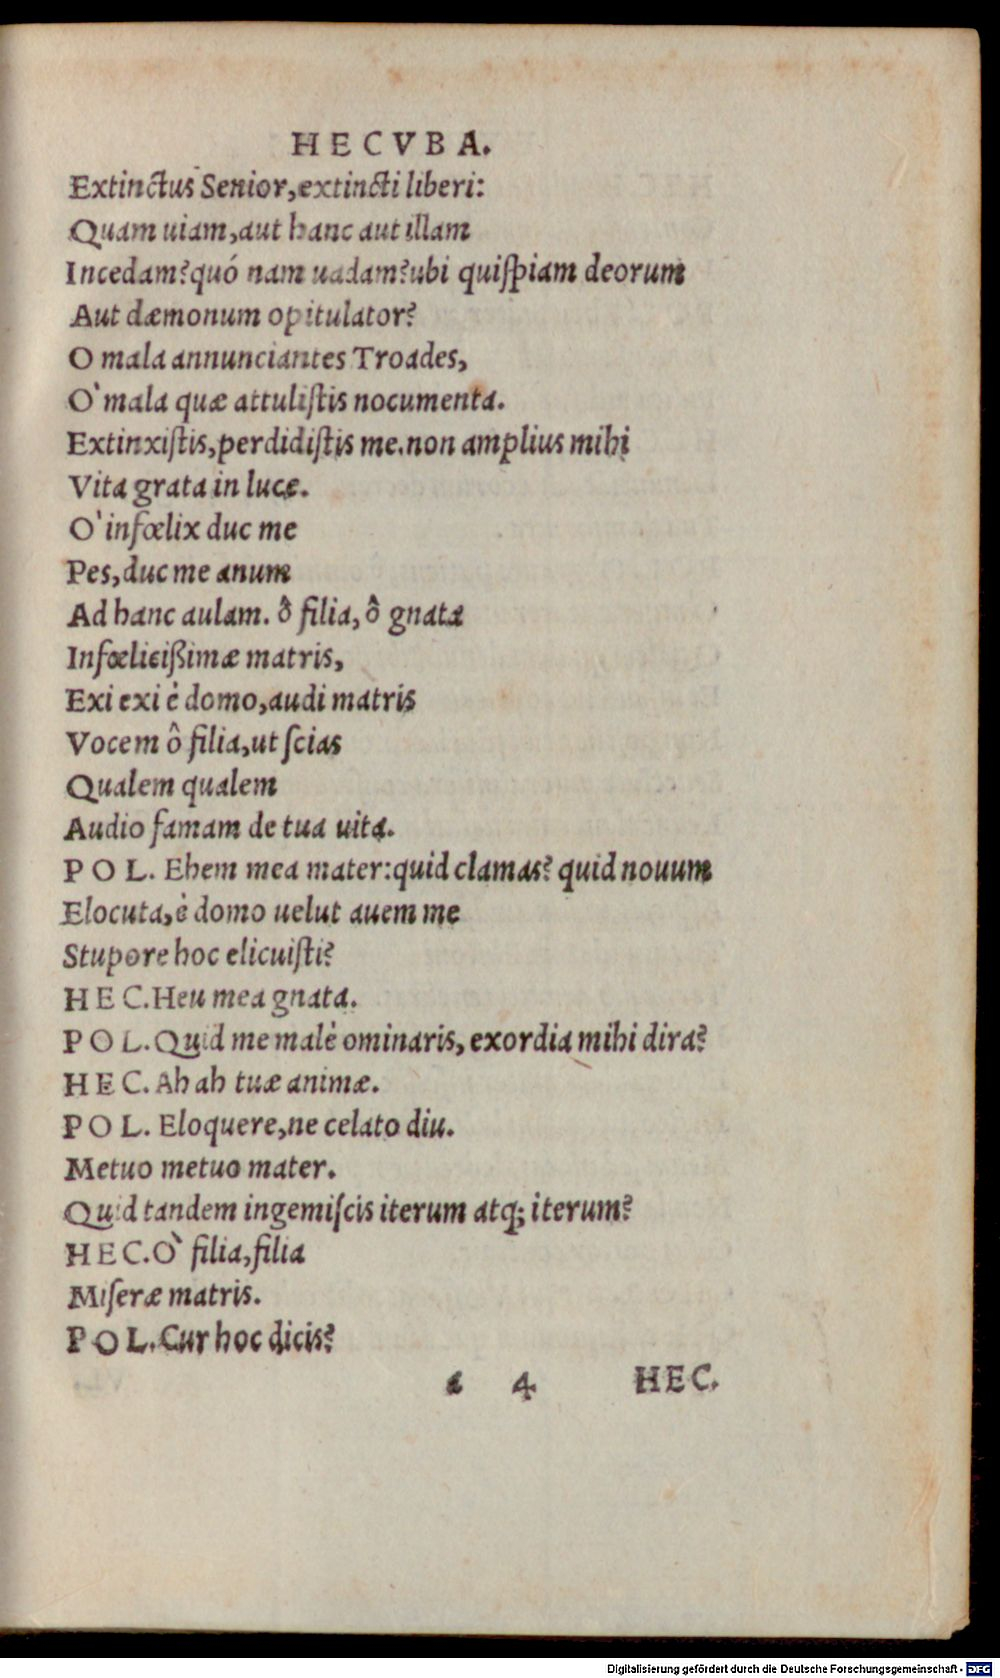 HECVBA.
Extinctus Senior, extincti liberi:
Quam uiam, aut hanc aut illam
Incedam? quó nam uadam? ubi quiſpiam deorum
Aut dæmonum opitulator?
O mala annunciantes Troades,
O` mala quæ attuliſtis nocumenta.
Extinxiſtis, perdidiſtis me. non amplius mihi
Vita grata in luce.
O` infœlix duc me
Pes, duc me anum
Ad hanc aulam. ô filia, ô gnata
Infœliciſſimæ matris,
Exi exi è domo, audi matris
Vocem ô filia, ut ſcias
Qualem qualem
Audio famam de tua uita.
POL. Ehem mea mater: quid clamas? quid nouum
Elocuta, è domo uelut auem me
Stupore hoc elicuiſti?
HEC. Heu mea gnata.
POL. Quid me malè ominaris, exordia mihi dira?
HEC. Ah ah tuæ animæ.
POL. Eloquere, ne celato diu.
Metuo metuo mater.
Quid tandem ingemiſcis iterum atq; iterum?
HEC. O` filia, filia
Miſeræ matris.
POL. Cur hoc dicis?
a 4 HEC.
Digitalisierung gefördert durch die Deutsche Forschungsgemeinschaft - DFG